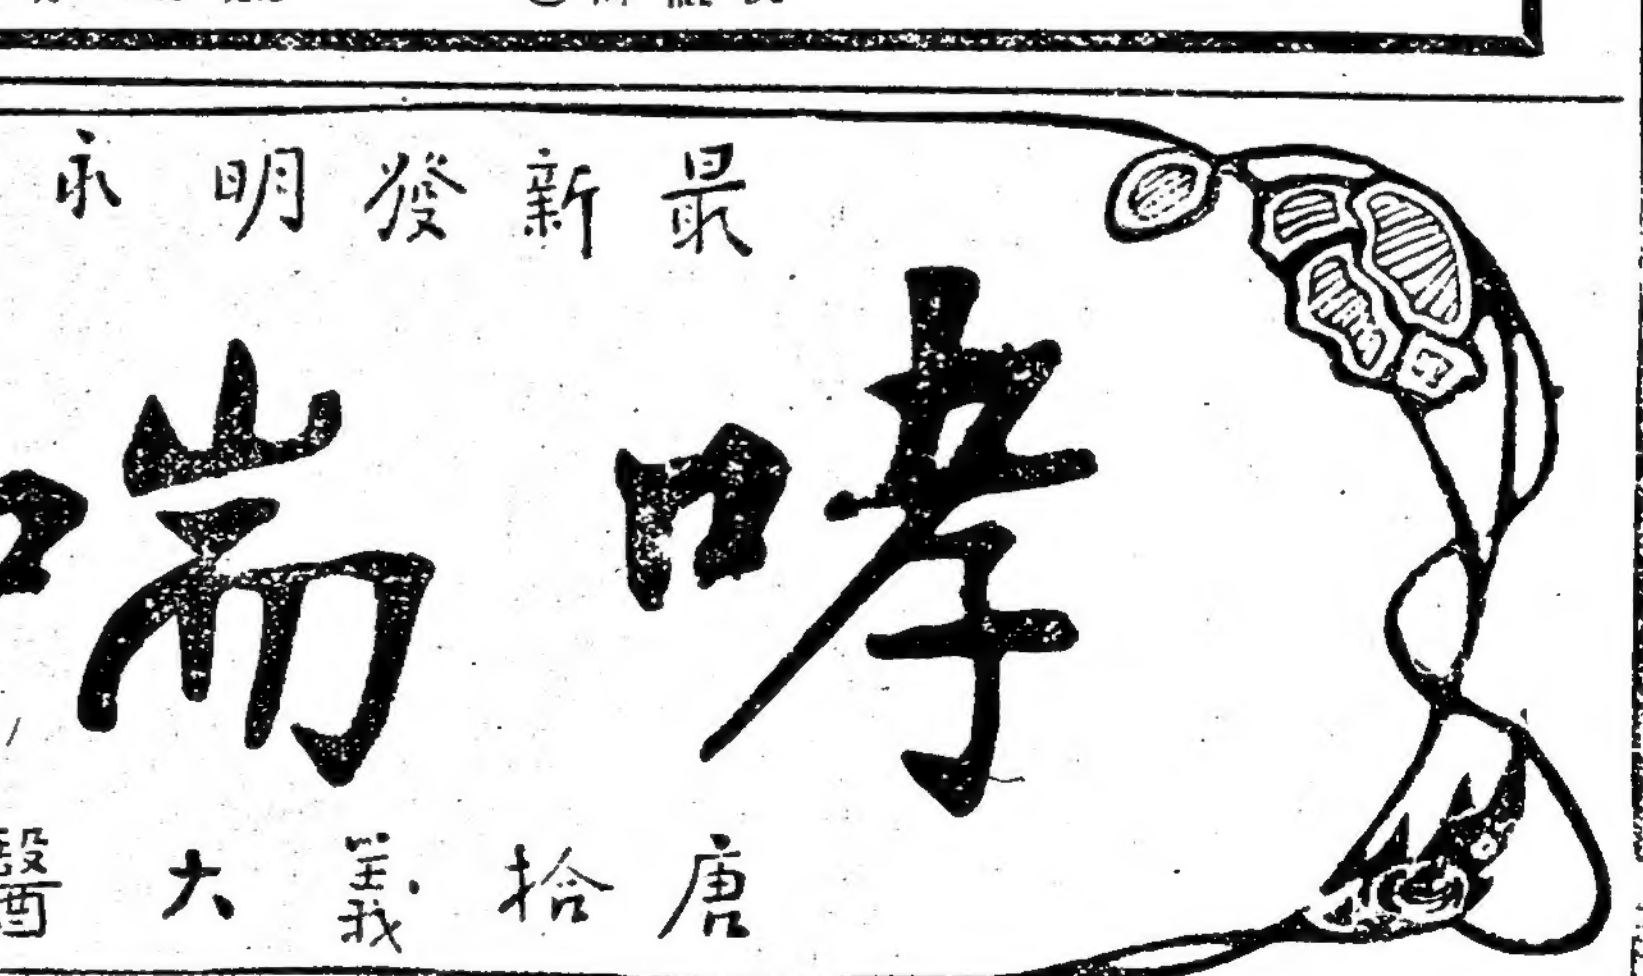 最新發明永
哮喘
唐拾義大醫